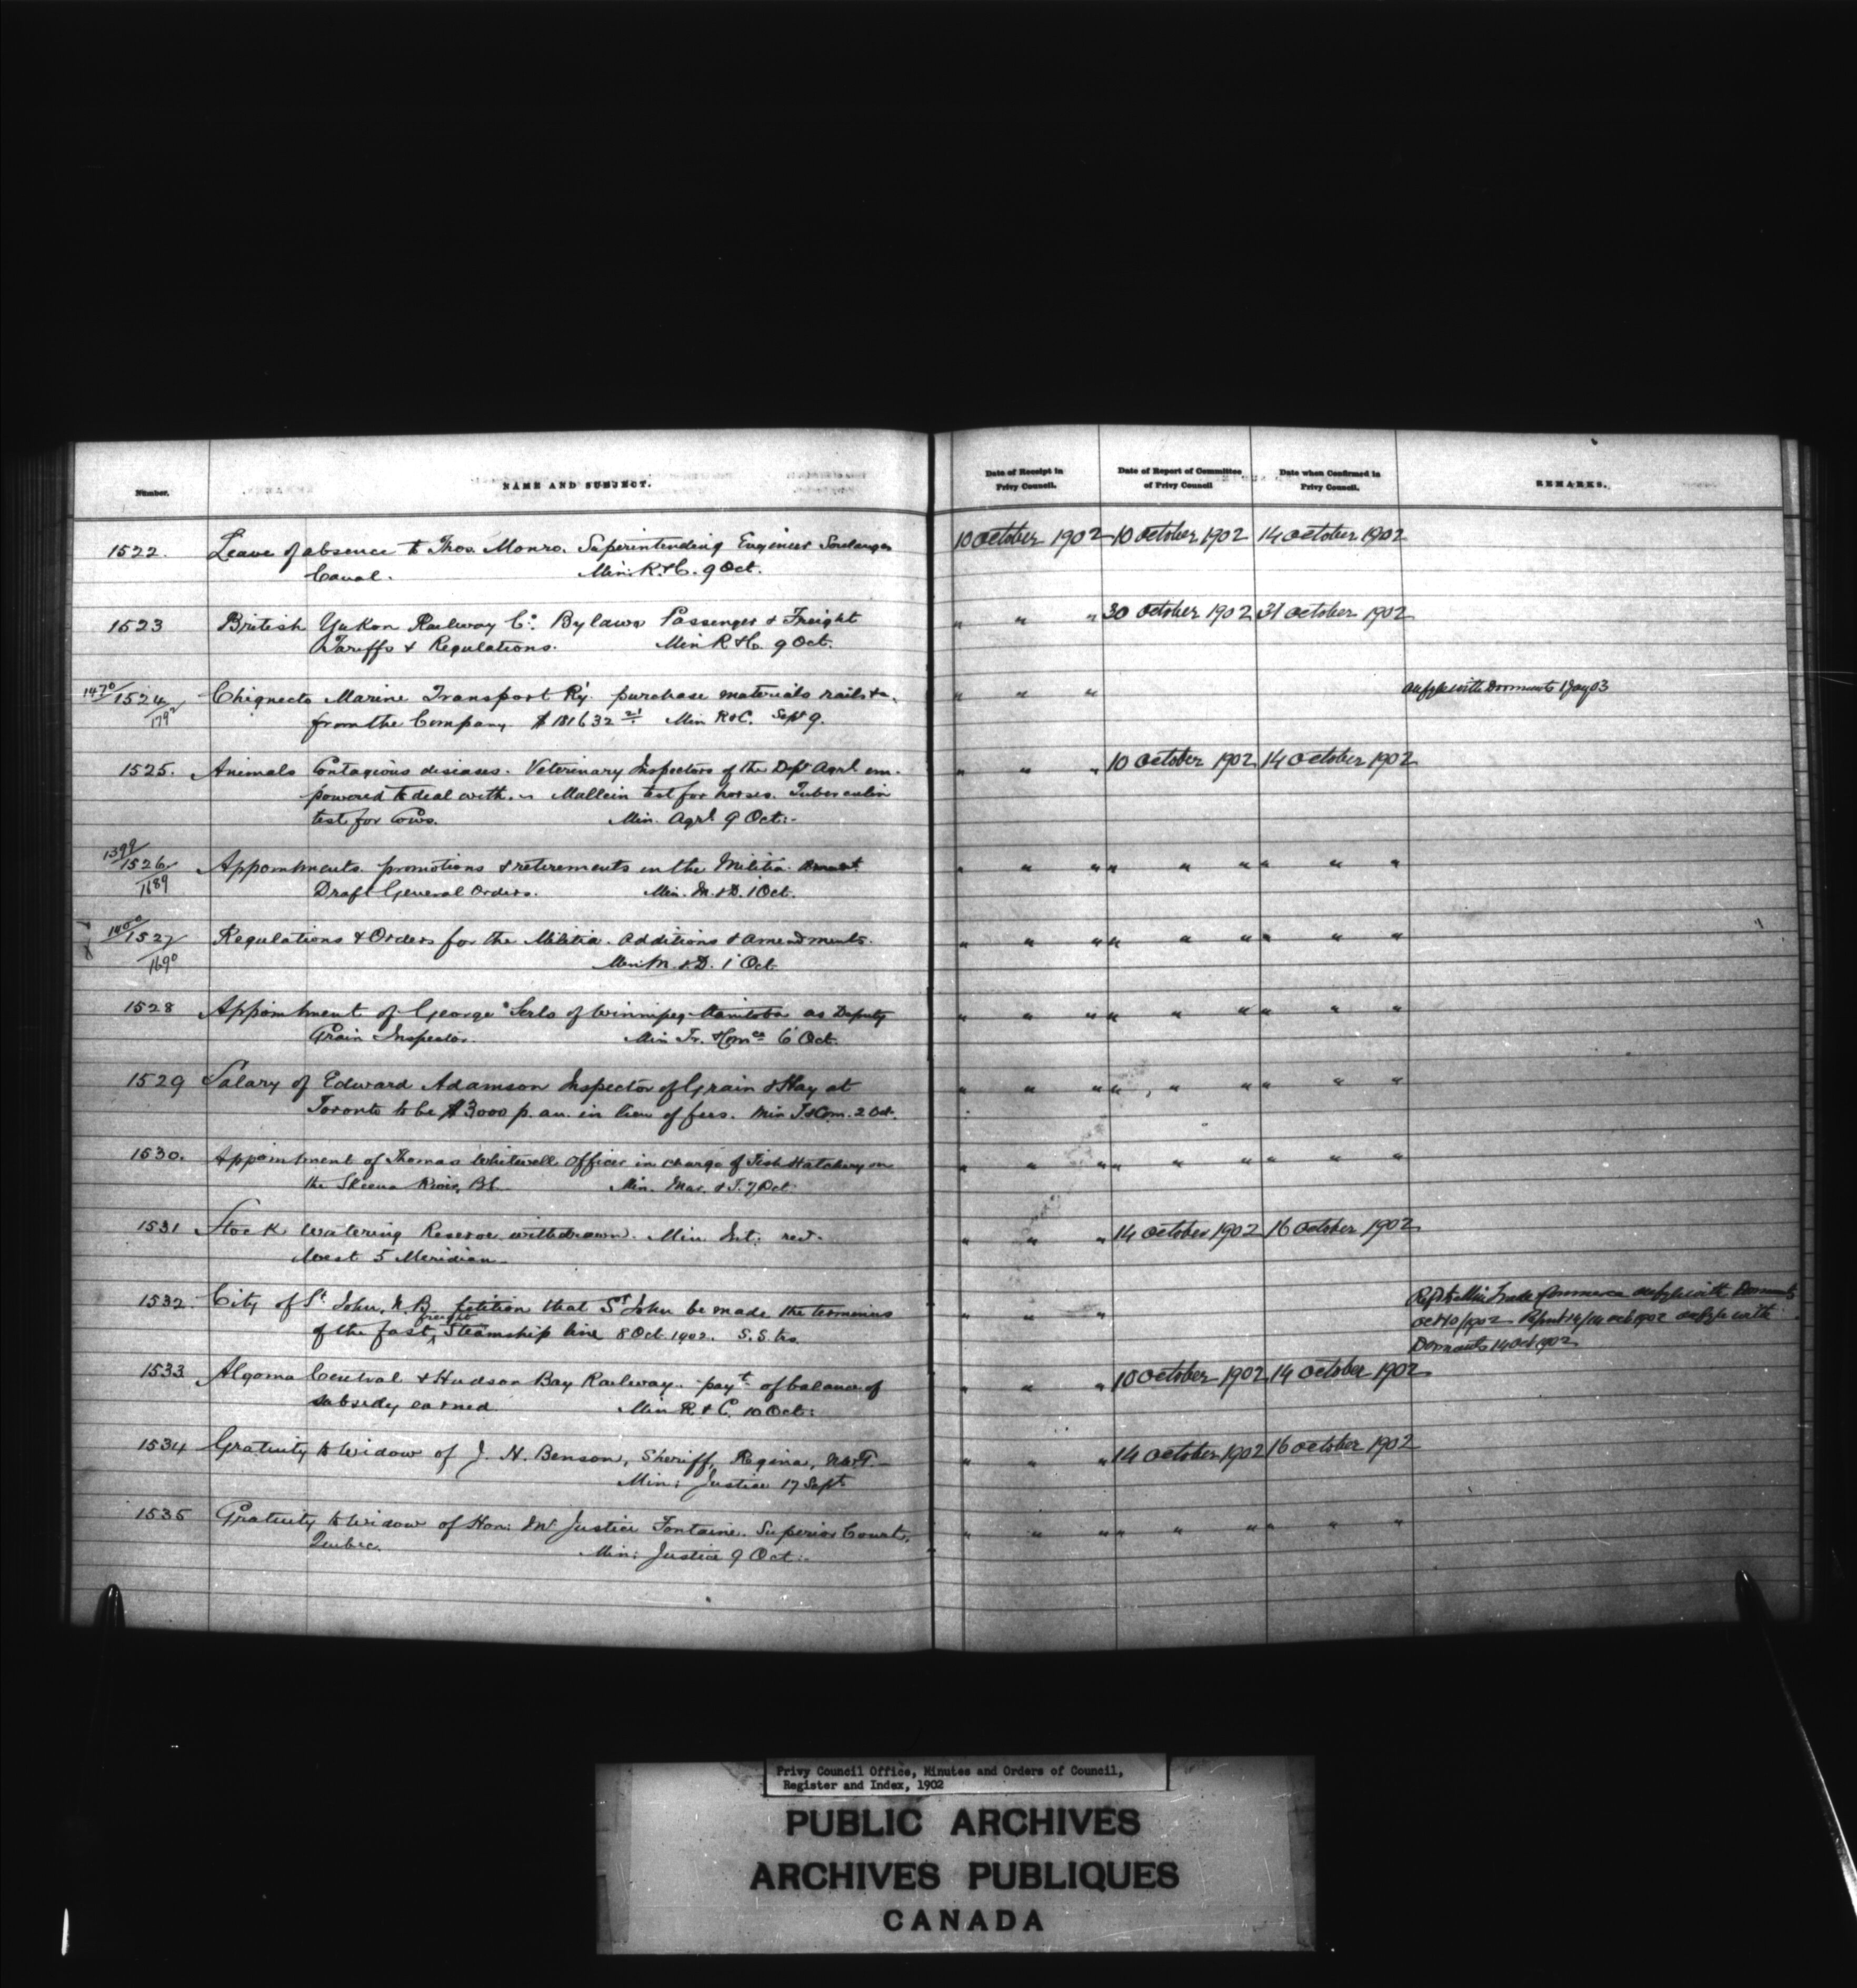 Number.
NAME AND SUBJECT.
Date of Receipt in Privy Council.
Date of Report of Committee of Privy Council
Date when Confirmed in Privy Council.
REMARKS.
1522. Leave of absence to Thos. Monro. Superintending Engineer Soulanges 10 October 1902 10 October 1902 14 October 1902
Canal. Min: R. & C. 9 Oct.
1523 British Yukon Railway Co. Bylaws Passenger & Freight " " " 30 October 1902 31 October 1902
Tariffs & Regulations. Min R & C. 9 Oct.
1470/1524/1792 Chignecto Marine Transport Ry. purchase materials rails &c. " " "
from the Company $181632 21 Min R & C. Sept 9.
1525. Animals Contagious diseases. Veterinary Inspectors of the Dept Agrl em- " " " 10 October 1902 14 October 1902
powered to deal with. Mallein test for horses. Tuberculin
test for cows. Min. Agrl 9 Oct:-
1399/1526/1689 Appointments promotions & retirements in the Militia. " " " " " " " " "
Draft General Orders. Min. M. & D. 1 Oct.
1400/1527/1690 Regulations & Orders for the Militia. Additions & Amendments. " " " " " " " " "
Min M. & D. 1 Oct
1528 Appointment of George Serls of Winnipeg Manitoba as Deputy " " " " " " " " "
Grain Inspector. Min Tr. & Comce 6 Oct.
1529 Salary of Edward Adamson Inspector of Grain & Hay at " " " " " " " " "
Toronto to be $3000 p. an. in lieu of fees. Min T & Com. 2 Oct.
1530. Appointment of Thomas Whitwell Officer in charge of Fish Hatchery on " " " " " " " " "
the Skeena River, B.C. Min. Mar. & F. 7 Oct.
1531 Stock Watering Reserve withdrawn. Min Int: " " " 14 October 1902 16 October 1902
West 5 Meridian
1532. City of St. John, N.B. petition that St John be made the terminus " " "
of the fast freight Steamship line 8 Oct. 1902. S.S.
Oct 10/1902
Dormants 14 Oct 1902
1533 Algoma Central & Hudson Bay Railway. payt. of balance of " " " 10 October 1902 14 October 1902
subsidy earned Min R. & C. 10 Oct:
1534 Gratuity to Widow of J. H. Benson, Sheriff, Regina, N.W.T. " " " 14 October 1902 16 October 1902
Min: Justice 17 Sept
1535 Gratuity to Widow of Hon: Mr Justice Fontaine. Superior Court, " " " " " " " " "
Quebec. Min: Justice 9 Oct:-
Privy Council Office, Minutes and Orders of Council,
Register and Index, 1902
PUBLIC ARCHIVES
ARCHIVES PUBLIQUES
CANADA